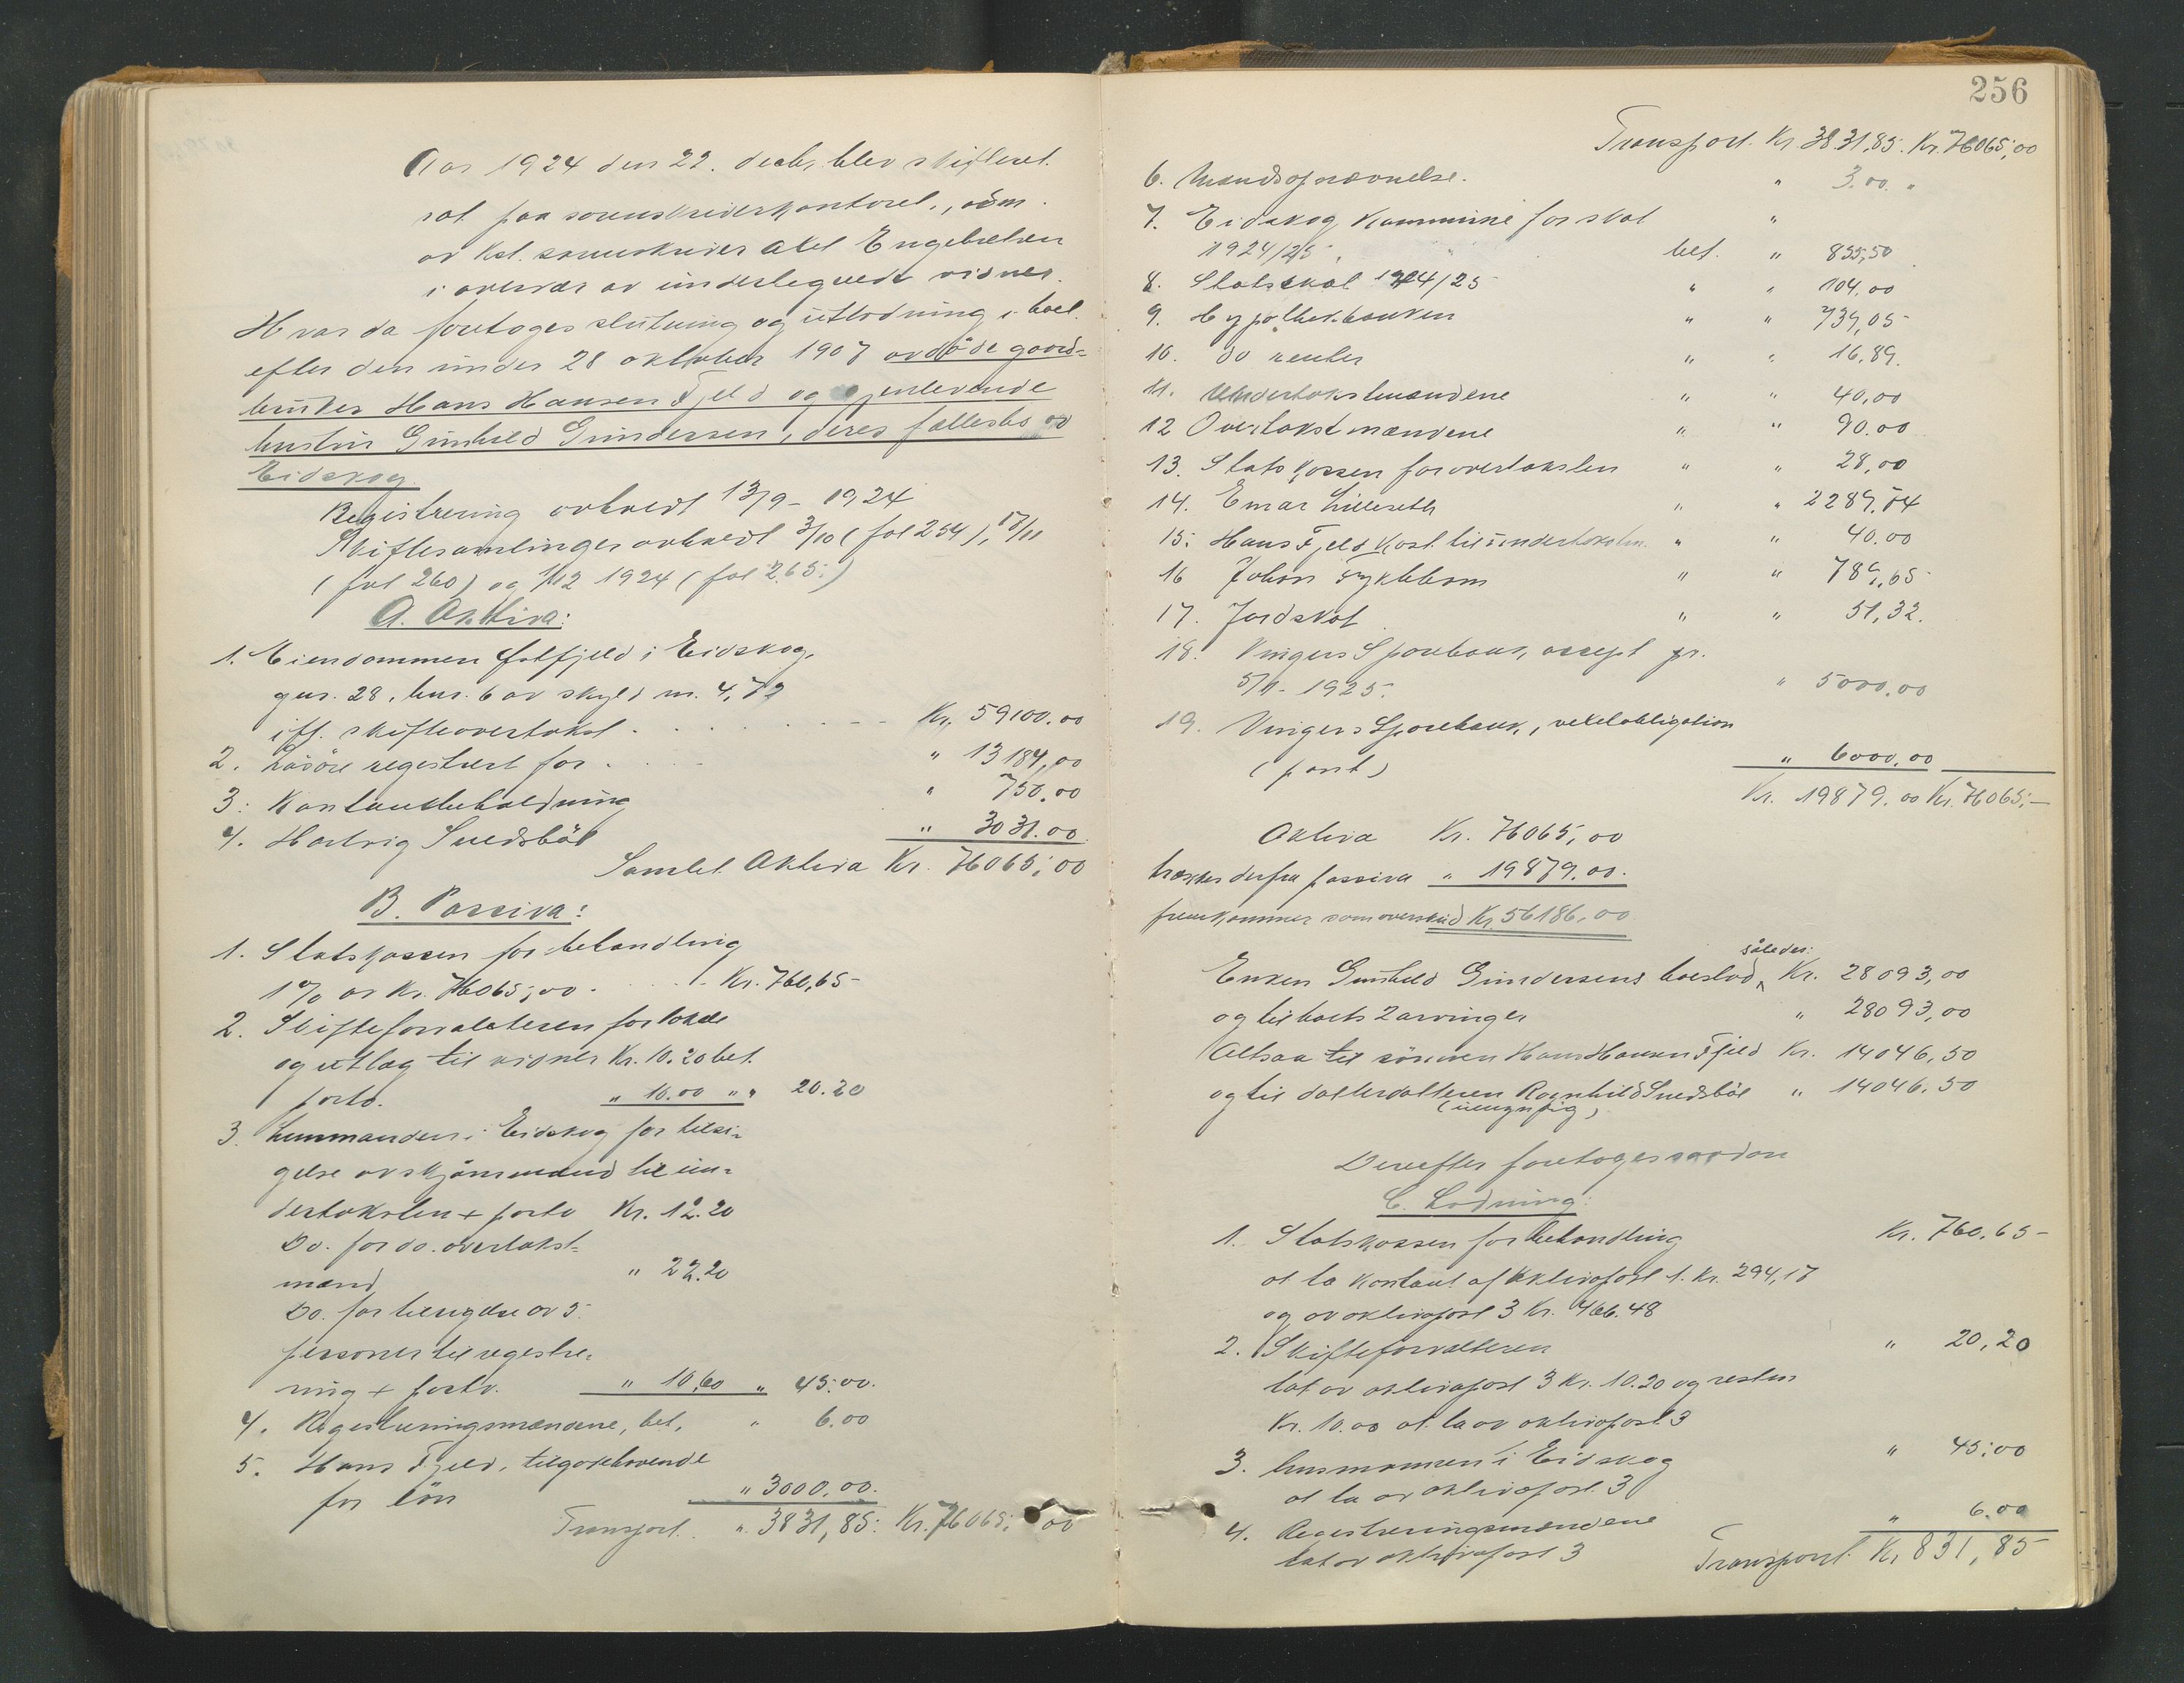 Aar 1924 den 22. decbr. blev skifteret
sat paa sorenskriverkontoret, adm.
av kst. sorenskriver Axel Engebretsen
i overvær av undertegnede vidner.
Hvor da foretoges slutning og utlodning i boet
efter den under 28 oktober 1907 avdöde gaard-
bruker Hans Hansen Fjeld og gjenlevende
hustru Gunhild Gundersen, deres fællesbo av
Eidskog
Registrering avholdt 13/9 - 1924
Skiftesamlinger avholdt 3/10 (fol 254), 17/11
(fol 260) og 1/12 1924 (fol 265.)
A. Aktiva:
1. Eiendommen Östfjeld i Eidskog,
gnr. 28, bnr. 6 av skyld m. 4,72
ifl. skifteovertakst . . . . . Kr. 59100.00
2. Lösöre registrert for . . . " 13184,00
3. Kontantbeholdning " 750.00
4. Hartvig Suedsböl " 3031.00
Samlet Aktiva Kr. 76065,00
B. Passiva:
1. Statskassen for behandling
1% av Kr. 76065,00 . . . . Kr. 760,65
2. Skifteforvalteren for lokale
og utlæg til vidner Kr. 10.20 bet.
porto. " 10.00 " " 20.20
3. Lensmanden i Eidskog for tilsi-
gelse av skjönsmænd til un-
dertaksten + porto Kr. 12.20
Do. for do. overtakst-
mænd " 22.20
Do. for tilsigelse av 5
personer til registre-
ring + porto. " 10,60 " 45.00.
4. Registreringsmændene, bet. " 6.00
5. Hans Fjeld, tilgodehavende
for lön " 3000.00.
Transport. " 3831,85. Kr. 76065,00
256
Transport Kr. 3831,85. Kr. 76065,00
6. Mandsopnævnelse. " 3.00 "
7. Eidskog Kommune for skat "
1924/25 bet. " 835,50
8. Statsskat 1924/25 " " 104,00
9. Hypothekbanken " " 739,05
10. do renter " " 16,89.
11. Undertakstmændene " " 40,00
12 Overtakstmændene " " 90.00
13. Statskassen for overtaksten " " 28,00
14. Einar Lilleseth " " 2289.54
15. Hans Fjeld kost til undertakstm. " " 40.00
16 Johan Tyklebom " " 789,65
17. Jordskat " " 51,32.
18. Vingers Sparebank, accept pr.
5/1 - 1925. " 5000,00
19. Vingers Sparebank, vekselobligation
(pant) " 6000,00
Kr. 19879.00 Kr. 76065,-
Aktiva Kr. 76065,00
trækkes derfra passiva " 19879.00.
fremkommer som overskud Kr. 56186,00
således:
Enken Gunhild Gundersens boeslod Kr. 28093,00
og til boets 2 arvinger " 28093,00
Altsaa til sönnen Hans Hansen Fjeld Kr. 14046,50
og til datterdatteren Ragnhild Suedsböl " 14046.50
(umyndig)
Derefter foretoges saadan
C. Lodning:
1. Statskassen for behandling Kr. 760.65
at ta kontant af Aktivapost 1. Kr. 294,17
og av aktivapost 3 Kr. 466.48
2. Skifteforvalteren " 20,20
tat av aktivapost 3 Kr. 10.20 og resten
Kr. 10.00 at ta av aktivapost 3
3. Lensmannen i Eidskog " 45.00
at ta av aktivapost 3
4. Registreringsmændene " 6.00
tat av aktivapost 3
Transport Kr 831,85